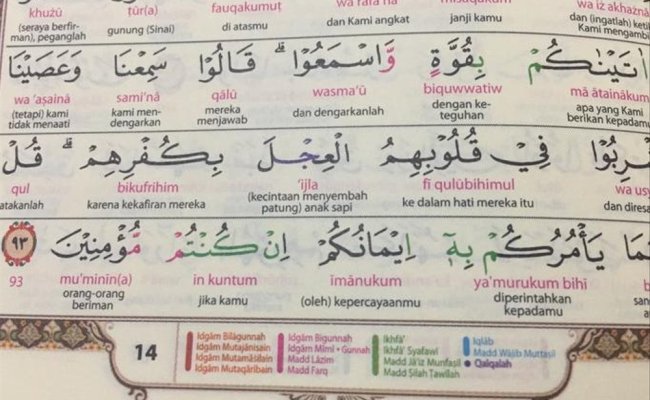 khużū ṭūr(a) fauqakumuṭ wa rafa‘nā wa iż akhażnā
(seraya berfir- man), peganglah gunung (Sinai) di atasmu dan Kami angkat janji kamu dan (ingatlah) Kami mengambil
اٰتَيْنٰكُمْ بِقُوَّةٍ وَّاسْمَعُوْا ۗ قَالُوْا سَمِعْنَا وَعَصَيْنَا
wa ‘aṣainā sami‘nā qālū wasma‘ū biquwwatiw mā ātainākum
(tetapi) kami tidak menaati kami men- dengarkan mereka menjawab dan dengarkanlah dengan ke- teguhan apa yang Kami berikan kepadamu
رِبُوْا فِيْ قُلُوْبِهِمُ الْعِجْلَ بِكُفْرِهِمْ ۗ قُلْ
qul bikufrihim ‘ijla fi qulūbihimul wa usy
atakanlah karena kekafiran mereka (kecintaan menyembah patung) anak sapi ke dalam hati mereka itu dan diresa
مَا يَأْمُرُكُمْ بِهٖٓ اِيْمَانُكُمْ اِنْ كُنْتُمْ مُّؤْمِنِيْنَ ٩٣
93 mu'minīn(a) in kuntum īmānukum ya'murukum bihī
orang-orang beriman jika kamu (oleh) kepercayaanmu diperintahkan kepadamu
14
Idgām Bilāgunnah Idgām Bigunnah Ikhfā' Iqlāb
Idgām Mutajānisain Idgām Mīmī - Gunnah Ikhfā' Syafawī Madd Wājib Muttaṣil
Idgām Mutamāṡilain Madd Lāzim Madd Jā'iz Munfaṣil Qalqalah
Idgām Mutaqāribain Madd Farq Madd Ṣilah Ṭawīlah